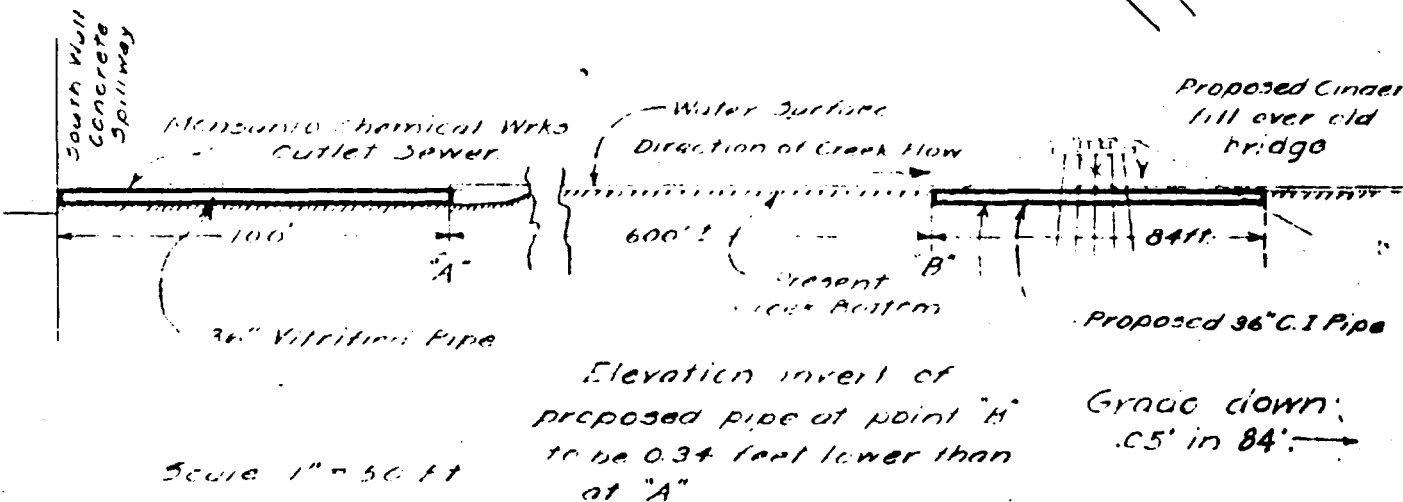 South Wall
Concrete
Spillway
Monsanto Chemical Wrks
Outlet Sewer
Water Surface
Direction of Creek Flow
Proposed Cinder
fill over old
bridge
100'
"A"
600' ±
"B"
84 ft.
Present
Creek Bottom
36" Vitrified Pipe
Proposed 36" C.I Pipe
Elevation invert of
proposed pipe at point "B"
to be 0.34 feet lower than
at "A"
Grade down
.05' in 84'
Scale 1" = 50 ft